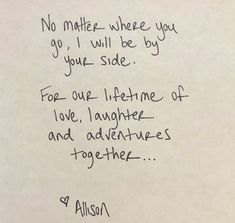 No matter where you
go, I will be by
your side.
For our lifetime of
love, laughter
and adventures
together...
♡ Allison